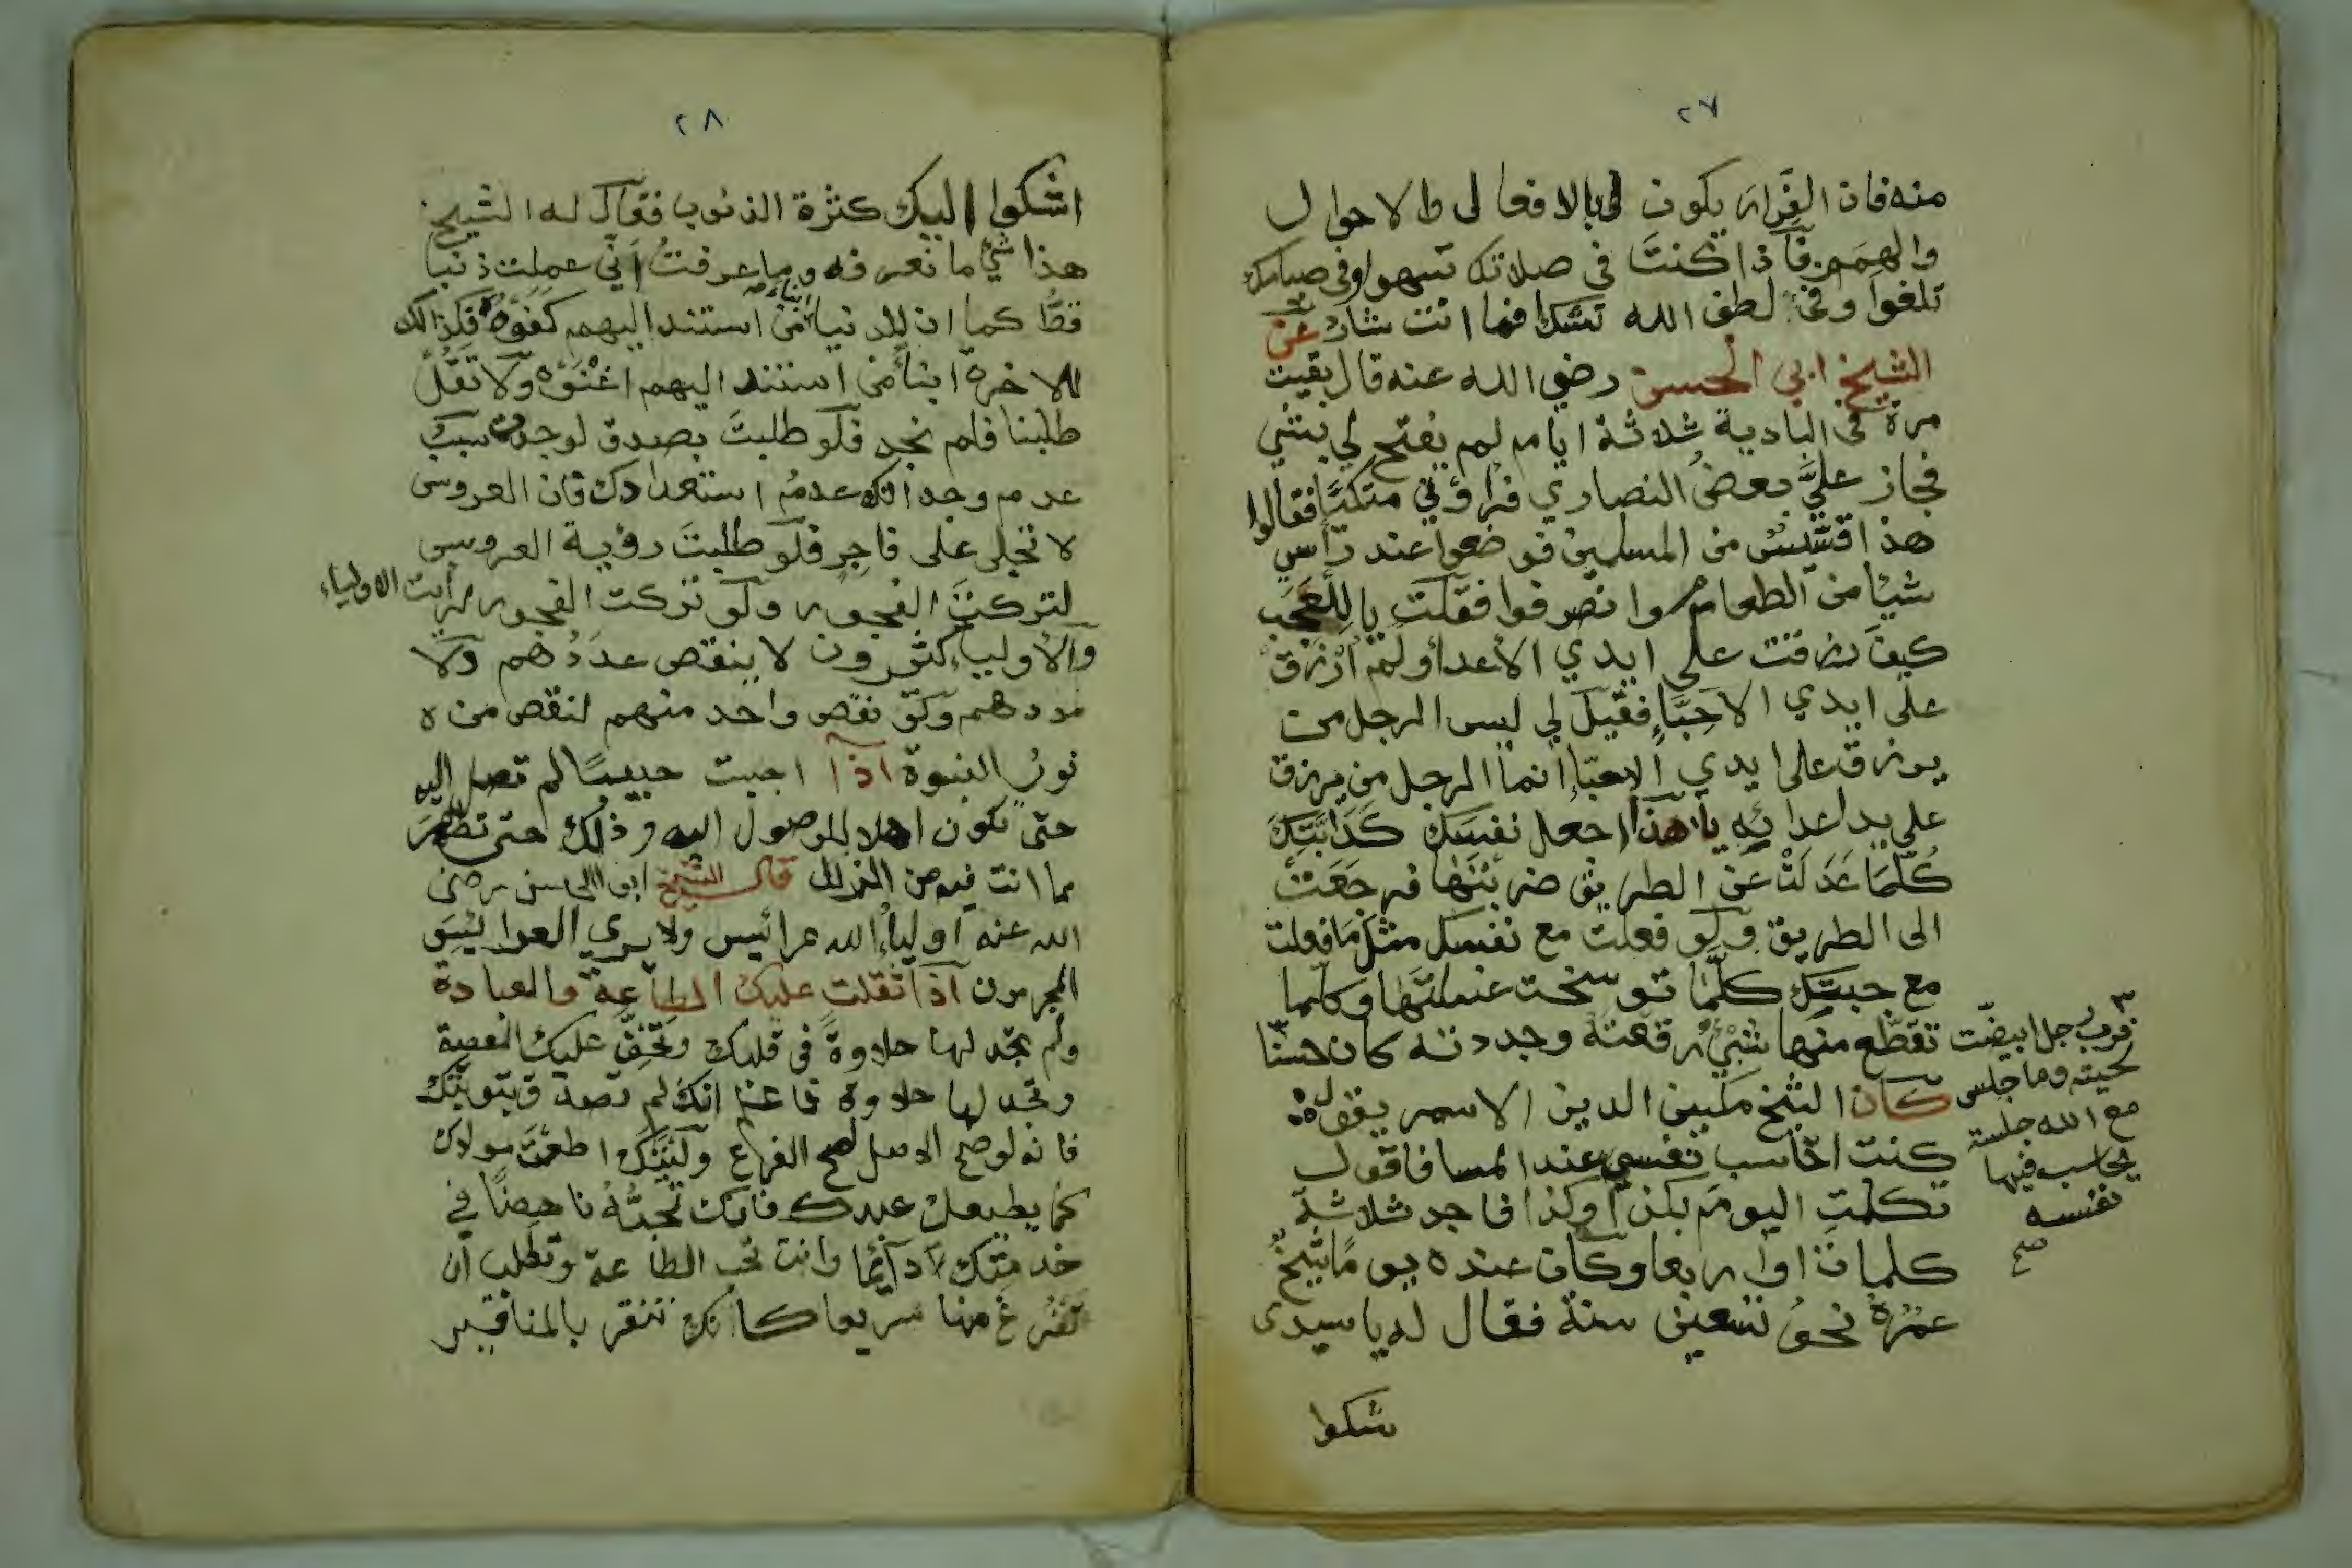 ٢٧
منه فان الفرار يكون لي بالافعال والاحوال
والهمم فاذا كنت في صلاتك تسهوا وفي صيامك
تلغوا وفي لطف الله تشك فما انت شارد عن
الشيخ ابي الحسن رضي الله عنه قال بقيت
مرة في البادية ثلاثة ايام لم يفتح لي بشي
فجاز علي بعض النصاري فراؤني متكيا فقالوا
هذا قسيس من المسلمين فوضعوا عند رأسي
شيا من الطعام وانصرفوا فقلت يا للعجب
كيف رزقت علي ايدي الاعدا ولم ارزق
على ايدي الاحباء فقيل لي ليس الرجل من
يرزق علي ايدي الاحباء انما الرجل من يرزق
علي يد اعدائه يا هذا اجعل نفسك كدابتك
كلما عدلت عن الطريق ضربتها فرجعت
الى الطريق ولو فعلت مع نفسك مثل ما فعلت
مع جبتك كلما توسخت غسلتها وكلما
تقطع منها شئ رقعته وجددته كان حسنا
فرب رجل ابيضت
لحيته وما جلس
مع الله جلسة
يحاسب فيها
نفسه
صح
كان الشيخ مكين الدين الاسمر يقول
كنت احاسب نفسي عند المسا فاقول
تكلمت اليوم بكذا وكذا فاجد ثلاثة
كلمات او اربعا وكان عنده يوما شيخ
عمره نحو تسعين سنة فقال له يا سيدى
شكوا
٢٨
اشكوا اليك كثرة الذنوب فقال له الشيخ
هذا شئ ما نعرفه وما عرفت اني عملت ذنبا
قط كما ان للدنيا ابناء من استند اليهم كفوه فكذالك
للاخرة ابنأ من استند اليهم اغنوه ولا تقل
طلبنا فلم نجد فلو طلبت بصدق لوجدت سبب
عدم وجدانك عدم استعدادك فان العروس
لا تجلى على فاجر فلو طلبت رؤية العروس
لتركت الفجور ولو تركت الفجور لرأيت الاولياء
والاولياء كثيرون لا ينقص عددهم ولا
مددهم ولو نقص واحد منهم لنقص من ه
نور النبوة اذا احببت حبيبا لم تصل اليه
حتى تكون اهلا للوصول اليه وذلك حتى تطهر
مما انت فيه من الرذائل قال الشيخ ابو الحسن رضى
الله عنه اولياء الله عرائيس ولا يري العرائيس
المجرمون اذا ثقلت عليك الطاعة والعبادة
ولم تجد لها حلاوة في قلبك وتخف عليك المعصية
وتجد لها حلاوة فاعلم انك لم تصدق بتوبتك
فانه لو صح الاصل لصح الفرع وليتك اطعت مولاك
كما يطيعك عبدك فانك تحبه ناهضا في
خدمتك دائما وانت تحب الطاعة وتطلب ان
تفرغ منها سريعا كانك تنقر بالمناقير